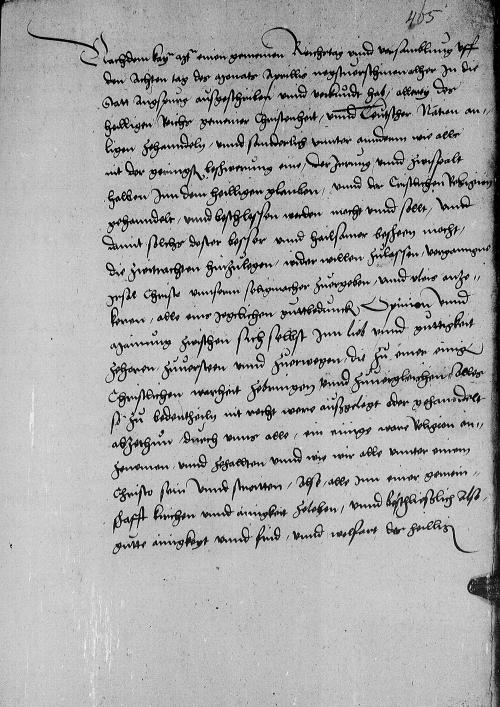 405
Nachdem kay. Mt. einen gemeinen Reichstag vnnd versamblung vff
den Achten tag des monats Aprillis negstuerschinen alher In die
Statt Augspurg ausgeschriben vnnd verkundt hat, allerley des
heilligen Reichs gemeiner Christenheit, vnnd Teutscher Nation an-
ligen zuhandeln, vnnd sonnderlich vnnter anderm wie alle
mit der geringst beschwerung eine, der Irrung vnnd Zwispalt
halben Inn dem heilligen glauben, vnnd der Cristlichen Religion
gehandelt, vnnd beschlossen werden mocht vnnd sollt, Vnnd
damit solchs dester besser vnnd hailsamer beschehen mocht,
die zwitrachten hinzulegen, wider willen zulassen, vergangne
Irsal Christo vnnserm seligmacher zuergeben, vnnd vleis anze-
keren, alle eins yegelichen guttbeduncken Opinion vnnd
Mainung zwischen sich selbst Inn lieb vnnd guttigkeit
zuhoren zuuersteen vnnd zuerwegen, die zu einer einigen
Christlichen warheit zubringen vnnd zuuergleichen, alles
so zu bedentheiln nit recht were ausgelegt oder gehanndelt
abzethun, durch vnns alle, ein einige ware Religion an-
zenemen vnnd zehallten vnnd wie wir alle vnnter einem
Christo sein vnnd streitten, Also, alle Inn einer gemein-
schafft kirchen vnnd ainigkeit zeleben, vnnd beschließlich Also
gutte ainigkeyt vnnd frid, vnnd wolfart des heilligen